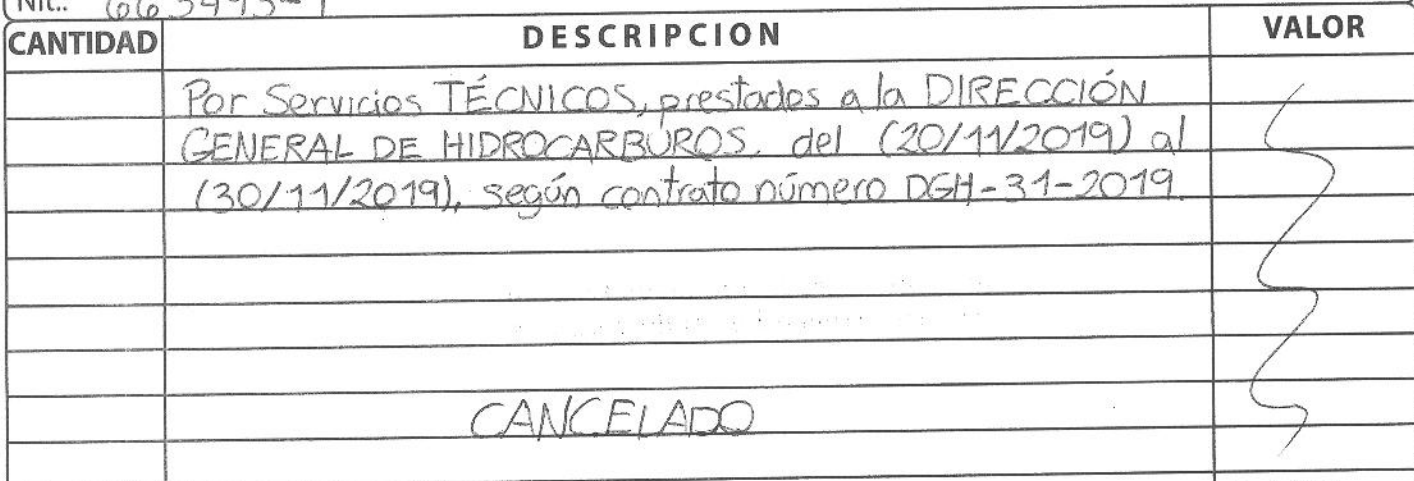 Nit.: 663493-1
CANTIDAD DESCRIPCION VALOR
Por Servicios TÉCNICOS, prestados a la DIRECCIÓN
GENERAL DE HIDROCARBUROS, del (20/11/2019) al
(30/11/2019), según contrato número DGH-31-2019.
CANCELADO